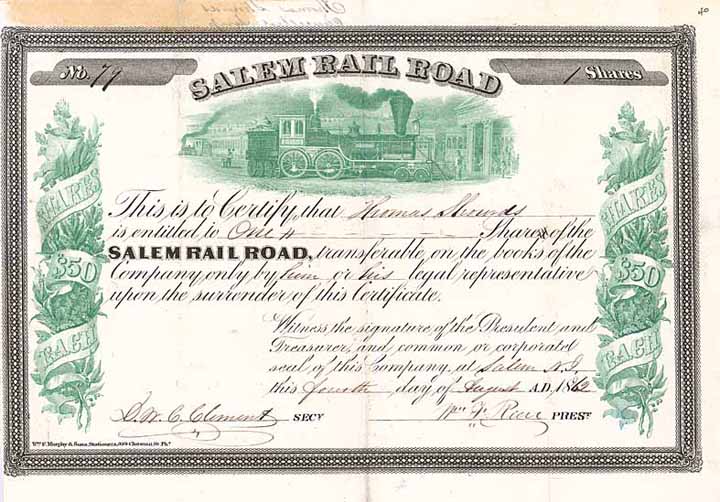 40
No. 79
SALEM RAIL ROAD
1 Shares
This is to Certify, that Thomas
is entitled to One Shares of the
SALEM RAIL ROAD, transferable on the books of the
Company only by him or his legal representative
upon the surrender of this Certificate.
SHARES
$50
EACH
SHARES
$50
EACH
Witness the signature of the President and
Treasurer, and common or corporated
seal of this Company, at Salem N.J.
this fourth day of August A.D. 186
D.W.C. Clement SECY
Wm F. PREST
Wm F. Murphy & Sons, Stationers, 339 Chestnut St Pha